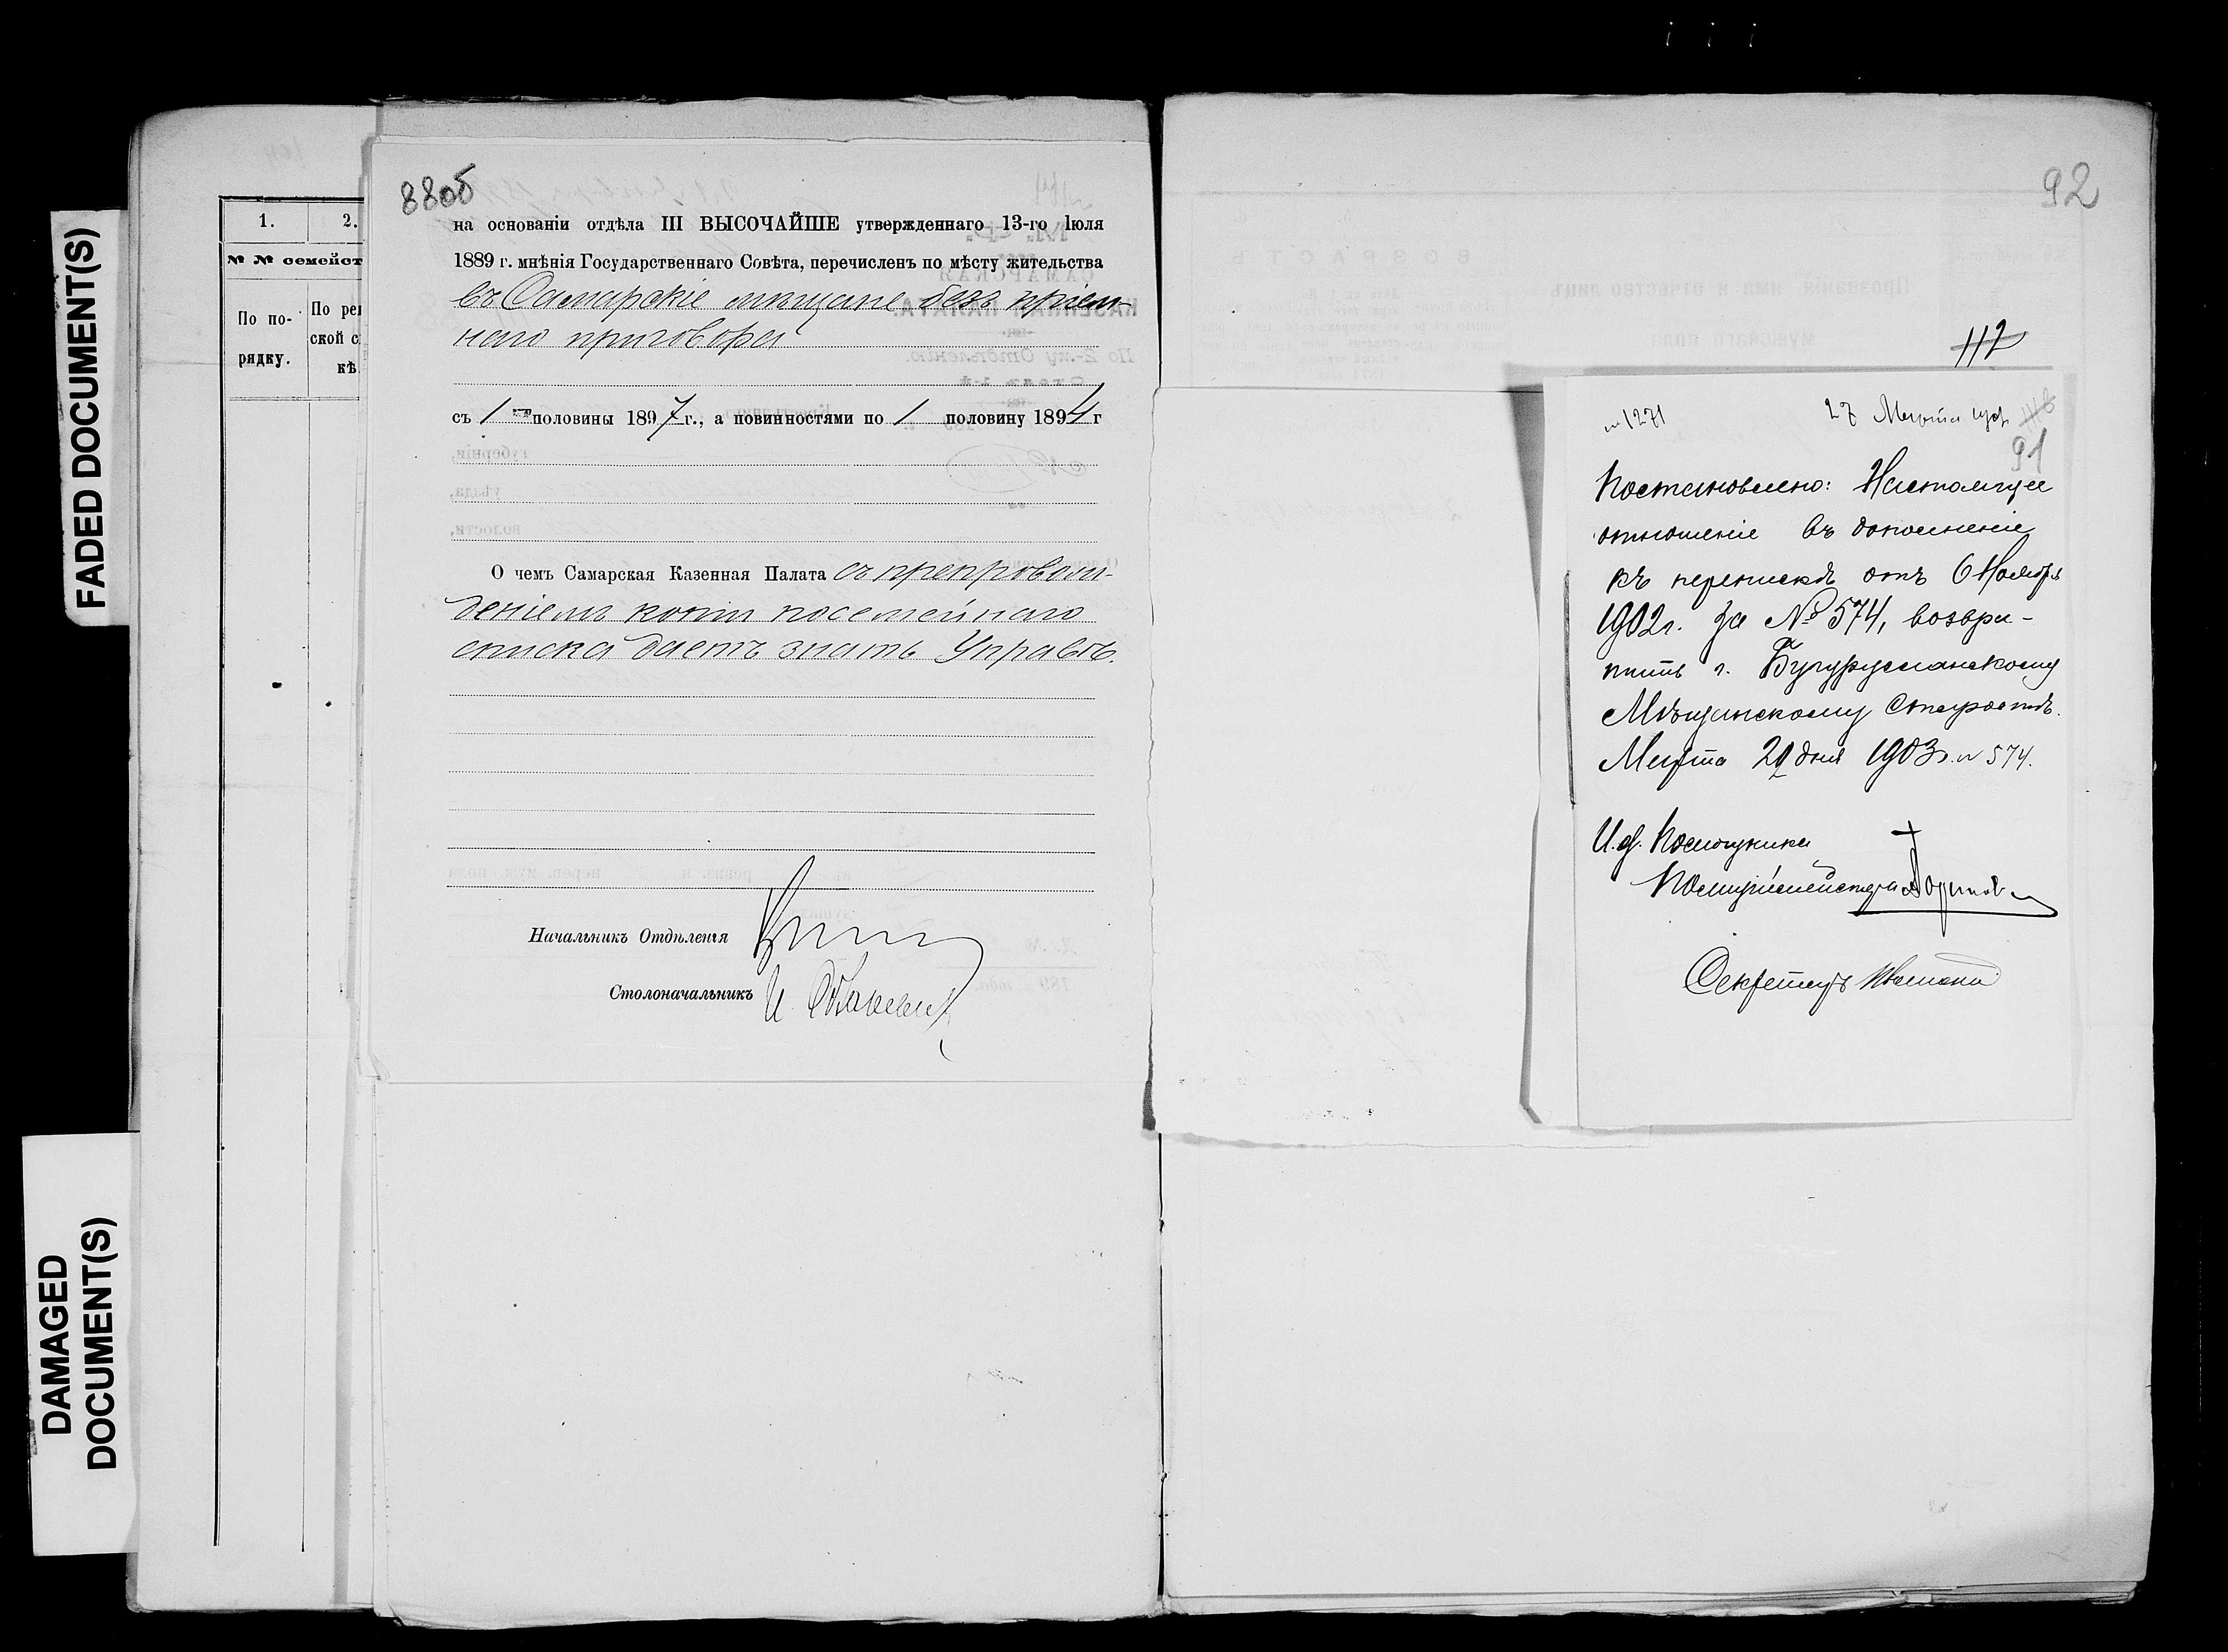 FADED DOCUMENT(S)
DAMAGED
DOCUMENT(S)
1. 2.
№ № семейст
По по-
рядку.
По ре
ской с
кѣ
88об
на основаніи отдѣла III ВЫСОЧАЙШЕ утвержденнаго 13-го Іюля
1889 г. мнѣнія Государственнаго Совѣта, перечисленъ по мѣсту жительства
въ Самарскіе мѣщане безъ пріем-
наго приговора
съ 1 половины 1897 г., а повинностями по 1 половину 1894 г
О чемъ Самарская Казенная Палата съ препровож-
деніемъ копіи посемейнаго
списка даетъ знать Управѣ.
Начальникъ Отдѣленія
Столоначальникъ И.
92
112
№ 1271 27 Марта
91
Постановлено: Настоящее
отношеніе въ дополненіе
къ перепискѣ отъ 6 Ноября
1902 г. за № 574, возвра-
тить г. Бугурусланскому
Мѣщанскому Старостѣ.
Марта 29 дня 1903 г. № 574.
И. д. Помощника
Полиціймейстера
Секретарь